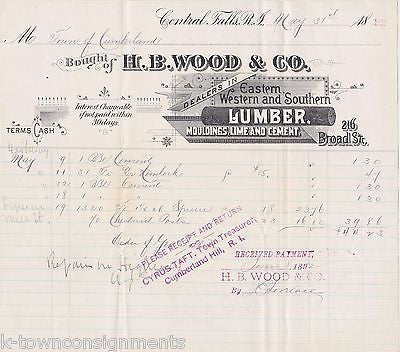 Central Falls, R.I. May 31st 18
M Town of Cumberland
Bought of H. B. WOOD & CO.
DEALERS IN
Eastern
Western and Southern
LUMBER,
MOULDINGS, LIME AND CEMENT,
216
Broad St.
Interest Chargeable
if not paid within
30 days.
TERMS CASH
May 9 1 Bbl Cement 1 30
11 31 Ft Hemlock $15. 47
12 1 Bbl Cement 1 30
18 1 30
19 1320 Ft Spruce 18 23 76
70 Chestnut Posts 23 16 10 39 86
44 23
Order of
PLEASE RECEIPT AND RETURN
CYRUS TAFT, Town Treasurer,
Cumberland Hill, R. I.
RECEIVED PAYMENT,
189
H. B. WOOD & CO.
By
k-townconsignments